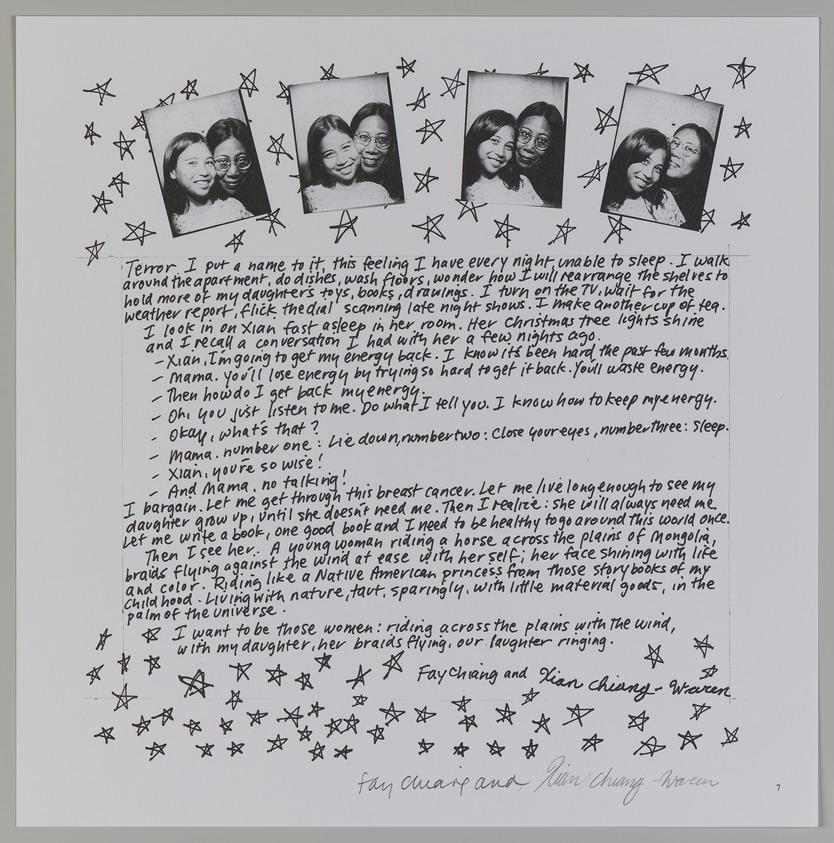 Terror I put a name to it, this feeling I have every night, unable to sleep. I walk
around the apartment, do dishes, wash floors, wonder how I will rearrange the shelves to
hold more of my daughter's toys, books, drawings. I turn on the TV, wait for the
weather report, flick the dial scanning late night shows. I make another cup of tea.
I look in on Xian fast asleep in her room. Her Christmas tree lights shine
and I recall a conversation I had with her a few nights ago.
- Xian, I'm going to get my energy back. I know it's been hard the past few months.
- Mama. You'll lose energy by trying so hard to get it back. You'll waste energy.
- Then how do I get back my energy.
- Oh, you just listen to me. Do what I tell you. I know how to keep my energy.
- Okay, what's that?
- Mama. number one: Lie down, number two: Close your eyes, number three: Sleep.
- Xian, you're so wise!
- And Mama, no talking!
I bargain. Let me get through this breast cancer. Let me live long enough to see my
daughter grow up, until she doesn't need me. Then I realize: she will always need me.
Let me write a book, one good book and I need to be healthy to go around this world once.
Then I see her. A young woman riding a horse across the plains of Mongolia,
braids flying against the wind at ease with herself; her face shining with life
and color. Riding like a Native American princess from those story books of my
childhood. Living with nature, taut, sparingly, with little material goods, in the
palm of the universe.
I want to be those women: riding across the plains with the wind,
with my daughter, her braids flying, our laughter ringing.
Fay Chiang and Xian Chiang-Waren
Fay Chiang and Xian Chiang-Waren
7